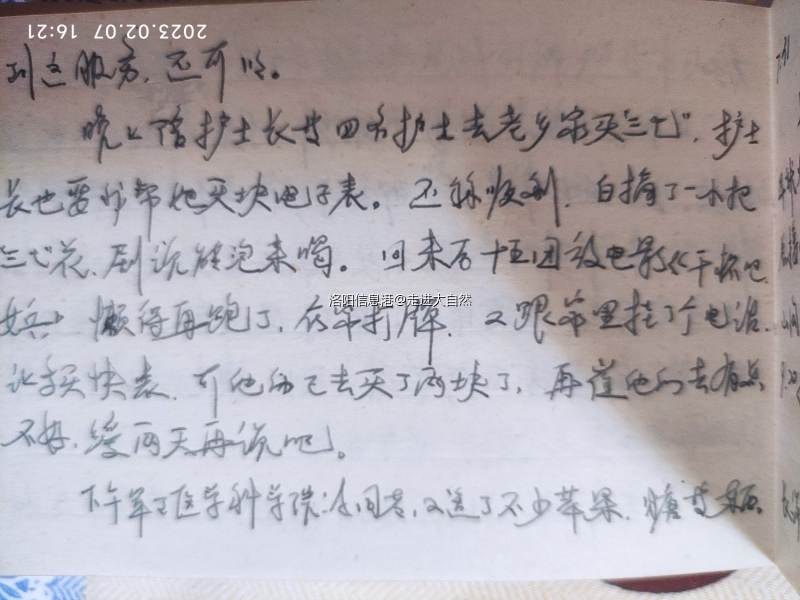 2023.02.07 16:21
到这服务,还可以。
晚上陪护士长等四名护士去老乡家买"三七",护士
长也要我帮她买块电子表。还称顺利,白摘了一小把
三七花,剧说能泡来喝。回来后十五团放电影《干杯吧
女兵》懒得再跑了,在家打牌,又跟家里挂了个电话,
让买块表,可他们已去买了两块了,再催他们去有点
不好,缓两天再说吧。
下午军医学科学院,又送了不少苹果,糖等
洛阳信息港@走进大自然